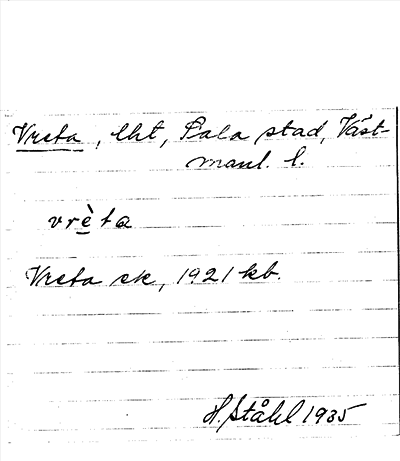 Vreta, lht, Sala stad, Väst-
manl. l.
vrèta
Vreta ek, 1921 kb.
H. Ståhl 1935